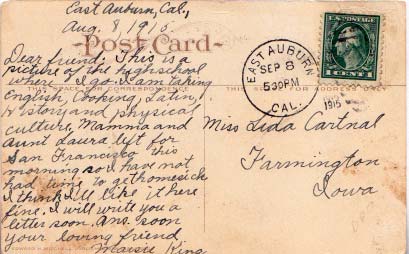 East Auburn, Cal.,
Aug. 8, 1915
Post Card
Dear friend: This is a
picture of the high school
where I go. I am taking
THIS SPACE FOR CORRESPONDENCE
English, Cooking, Latin,
History and physical
culture. Mamma and
Aunt Laura left for
San Francisco this
morning so I have not
had time to get homesick
I think I'll like it here
fine. I will write you a
letter soon. Ans. soon
your loving friend
Maisie King
EAST AUBURN
SEP 8
530PM
CAL.
1915
U.S. POSTAGE
1 CENT 1
Miss Lida Cartnal
Farmington
Iowa